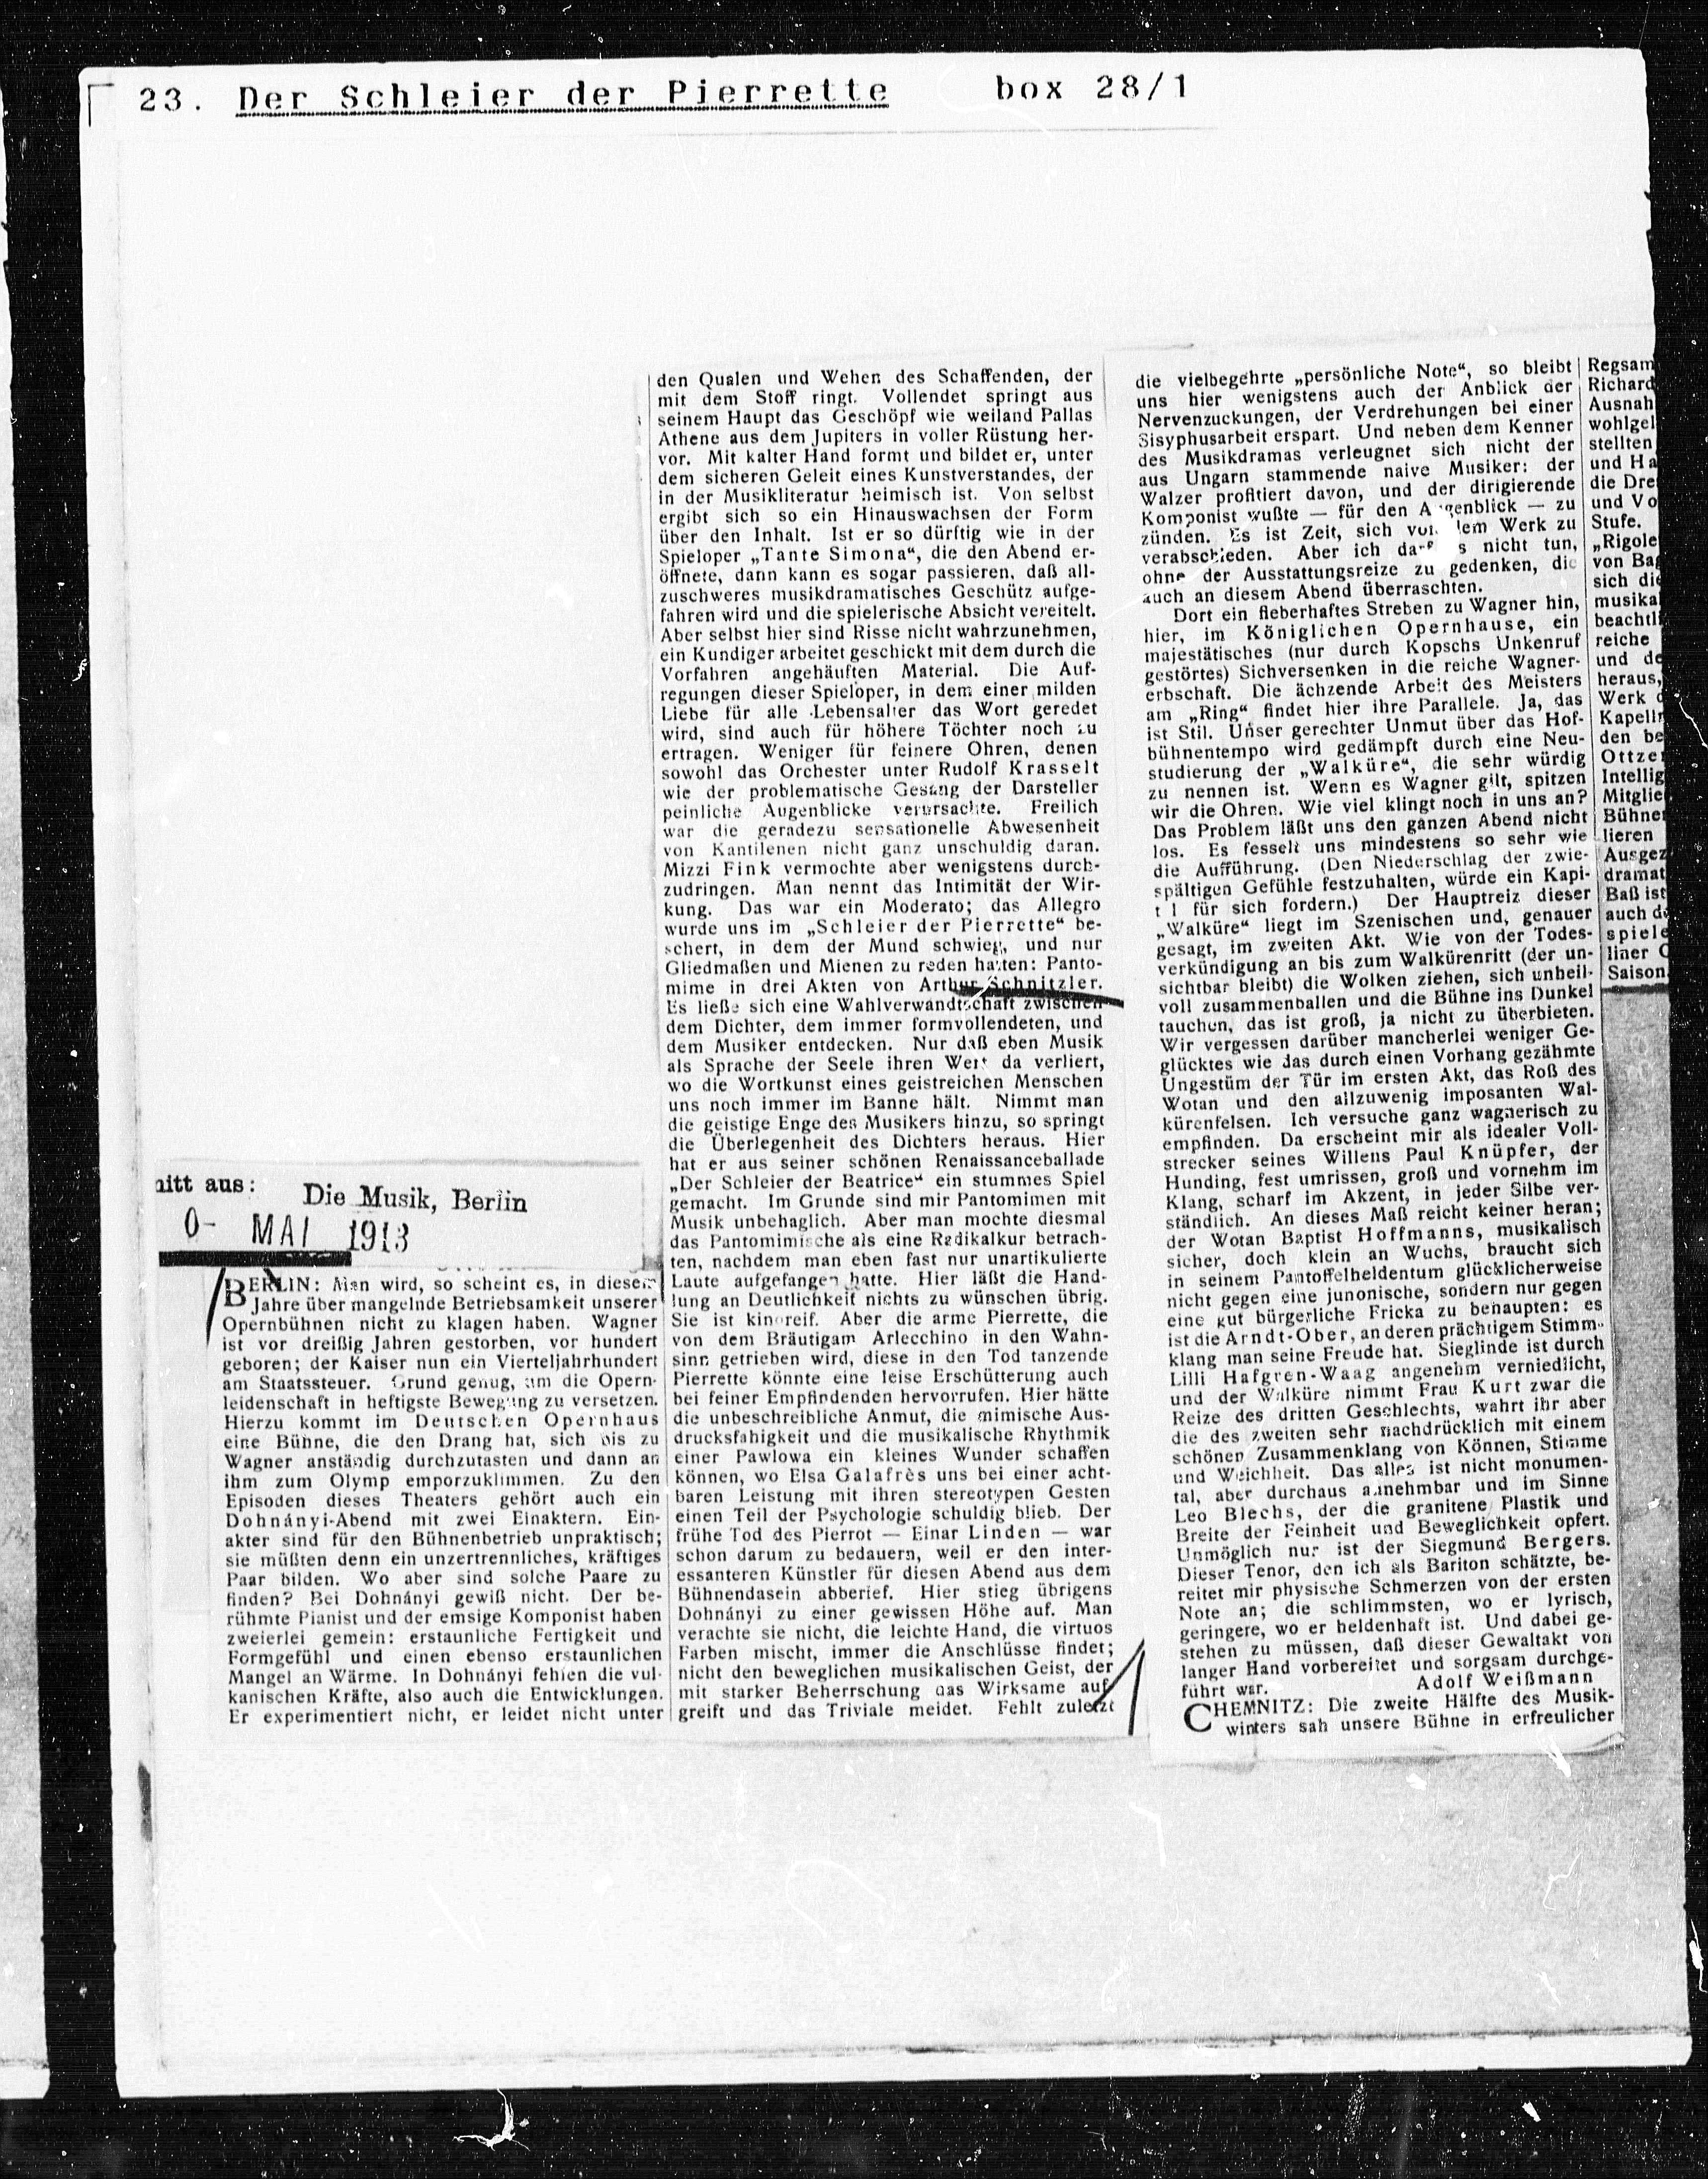 23. Der Schleier der Pierrette box 28/1
nitt aus:
Die Musik, Berlin
0- MAI 1913
BERLIN: Man wird, so scheint es, in diesem
Jahre über mangelnde Betriebsamkeit unserer
Opernbühnen nicht zu klagen haben. Wagner
ist vor dreißig Jahren gestorben, vor hundert
geboren; der Kaiser nun ein Vierteljahrhundert
am Staatssteuer. Grund genug, um die Opern-
leidenschaft in heftigste Bewegung zu versetzen.
Hierzu kommt im Deutschen Opernhaus
eine Bühne, die den Drang hat, sich bis zu
Wagner anständig durchzutasten und dann an
ihm zum Olymp emporzuklimmen. Zu den
Episoden dieses Theaters gehört auch ein
Dohnányi-Abend mit zwei Einaktern. Ein-
akter sind für den Bühnenbetrieb unpraktisch;
sie müßten denn ein unzertrennliches, kräftiges
Paar bilden. Wo aber sind solche Paare zu
finden? Bei Dohnányi gewiß nicht. Der be-
rühmte Pianist und der emsige Komponist haben
zweierlei gemein: erstaunliche Fertigkeit und
Formgefühl und einen ebenso erstaunlichen
Mangel an Wärme. In Dohnányi fehlen die vul-
kanischen Kräfte, also auch die Entwicklungen.
Er experimentiert nicht, er leidet nicht unter
den Qualen und Wehen des Schaffenden, der
mit dem Stoff ringt. Vollendet springt aus
seinem Haupt das Geschöpf wie weiland Pallas
Athene aus dem Jupiters in voller Rüstung her-
vor. Mit kalter Hand formt und bildet er, unter
dem sicheren Geleit eines Kunstverstandes, der
in der Musikliteratur heimisch ist. Von selbst
ergibt sich so ein Hinauswachsen der Form
über den Inhalt. Ist er so dürftig wie in der
Spieloper „Tante Simona“, die den Abend er-
öffnete, dann kann es sogar passieren, daß all-
zuschweres musikdramatisches Geschütz aufge-
fahren wird und die spielerische Absicht vereitelt.
Aber selbst hier sind Risse nicht wahrzunehmen,
ein Kundiger arbeitet geschickt mit dem durch die
Vorfahren angehäuften Material. Die Auf-
regungen dieser Spieloper, in dem einer milden
Liebe für alle Lebensalter das Wort geredet
wird, sind auch für höhere Töchter noch zu
ertragen. Weniger für feinere Ohren, denen
sowohl das Orchester unter Rudolf Krasselt
wie der problematische Gesang der Darsteller
peinliche Augenblicke verursachte. Freilich
war die geradezu sensationelle Abwesenheit
von Kantilenen nicht ganz unschuldig daran.
Mizzi Fink vermochte aber wenigstens durch-
zudringen. Man nennt das Intimität der Wir-
kung. Das war ein Moderato; das Allegro
wurde uns im „Schleier der Pierrette“ be-
schert, in dem der Mund schwieg, und nur
Gliedmaßen und Mienen zu reden hatten: Panto-
mime in drei Akten von Arthur Schnitzler.
Es ließe sich eine Wahlverwandtschaft zwischen
dem Dichter, dem immer formvollendeten, und
dem Musiker entdecken. Nur daß eben Musik
als Sprache der Seele ihren Wert da verliert,
wo die Wortkunst eines geistreichen Menschen
uns noch immer im Banne hält. Nimmt man
die geistige Enge des Musikers hinzu, so springt
die Überlegenheit des Dichters heraus. Hier
hat er aus seiner schönen Renaissanceballade
„Der Schleier der Beatrice“ ein stummes Spiel
gemacht. Im Grunde sind mir Pantomimen mit
Musik unbehaglich. Aber man mochte diesmal
das Pantomimische als eine Radikalkur betrach-
ten, nachdem man eben fast nur unartikulierte
Laute aufgefangen hatte. Hier läßt die Hand-
lung an Deutlichkeit nichts zu wünschen übrig.
Sie ist kinoreif. Aber die arme Pierrette, die
von dem Bräutigam Arlecchino in den Wahn-
sinn getrieben wird, diese in den Tod tanzende
Pierrette könnte eine leise Erschütterung auch
bei feiner Empfindenden hervorrufen. Hier hätte
die unbeschreibliche Anmut, die mimische Aus-
drucksfähigkeit und die musikalische Rhythmik
einer Pawlowa ein kleines Wunder schaffen
können, wo Elsa Galafrès uns bei einer acht-
baren Leistung mit ihren stereotypen Gesten
einen Teil der Psychologie schuldig blieb. Der
frühe Tod des Pierrot — Einar Linden — war
schon darum zu bedauern, weil er den inter-
essanteren Künstler für diesen Abend aus dem
Bühnendasein abberief. Hier stieg übrigens
Dohnányi zu einer gewissen Höhe auf. Man
verachte sie nicht, die leichte Hand, die virtuos
Farben mischt, immer die Anschlüsse findet;
nicht den beweglichen musikalischen Geist, der
mit starker Beherrschung das Wirksame auf-
greift und das Triviale meidet. Fehlt zuletzt
die vielbegehrte „persönliche Note“, so bleibt
uns hier wenigstens auch der Anblick der
Nervenzuckungen, der Verdrehungen bei einer
Sisyphusarbeit erspart. Und neben dem Kenner
des Musikdramas verleugnet sich nicht der
aus Ungarn stammende naive Musiker: der
Walzer profitiert davon, und der dirigierende
Komponist wußte — für den Augenblick — zu
zünden. Es ist Zeit, sich von dem Werk zu
verabschieden. Aber ich darf s nicht tun,
ohne der Ausstattungsreize zu gedenken, die
auch an diesem Abend überraschten.
Dort ein fieberhaftes Streben zu Wagner hin,
hier, im Königlichen Opernhause, ein
majestätisches (nur durch Kopschs Unkenruf
gestörtes) Sichversenken in die reiche Wagner-
erbschaft. Die ächzende Arbeit des Meisters
am „Ring“ findet hier ihre Parallele. Ja, das
ist Stil. Unser gerechter Unmut über das Hof-
bühnentempo wird gedämpft durch eine Neu-
studierung der „Walküre“, die sehr würdig
zu nennen ist. Wenn es Wagner gilt, spitzen
wir die Ohren. Wie viel klingt noch in uns an?
Das Problem läßt uns den ganzen Abend nicht
los. Es fesselt uns mindestens so sehr wie
die Aufführung. (Den Niederschlag der zwie-
spältigen Gefühle festzuhalten, würde ein Kapi-
t l für sich fordern.) Der Hauptreiz dieser
„Walküre“ liegt im Szenischen und, genauer
gesagt, im zweiten Akt. Wie von der Todes-
verkündigung an bis zum Walkürenritt (der un-
sichtbar bleibt) die Wolken ziehen, sich unheil-
voll zusammenballen und die Bühne ins Dunkel
tauchen, das ist groß, ja nicht zu überbieten.
Wir vergessen darüber mancherlei weniger Ge-
glücktes wie das durch einen Vorhang gezähmte
Ungestüm der Tür im ersten Akt, das Roß des
Wotan und den allzuwenig imposanten Wal-
kürenfelsen. Ich versuche ganz wagnerisch zu
empfinden. Da erscheint mir als idealer Voll-
strecker seines Willens Paul Knüpfer, der
Hunding, fest umrissen, groß und vornehm im
Klang, scharf im Akzent, in jeder Silbe ver-
ständlich. An dieses Maß reicht keiner heran;
der Wotan Baptist Hoffmanns, musikalisch
sicher, doch klein an Wuchs, braucht sich
in seinem Pantoffelheldentum glücklicherweise
nicht gegen eine junonische, sondern nur gegen
eine gut bürgerliche Fricka zu behaupten: es
ist die Arndt-Ober, an deren prächtigem Stimm-
klang man seine Freude hat. Sieglinde ist durch
Lilli Hafgren-Waag angenehm verniedlicht,
und der Walküre nimmt Frau Kurt zwar die
Reize des dritten Geschlechts, wahrt ihr aber
die des zweiten sehr nachdrücklich mit einem
schönen Zusammenklang von Können, Stimme
und Weichheit. Das alles ist nicht monumen-
tal, aber durchaus annehmbar und im Sinne
Leo Blechs, der die granitene Plastik und
Breite der Feinheit und Beweglichkeit opfert.
Unmöglich nur ist der Siegmund Bergers.
Dieser Tenor, den ich als Bariton schätzte, be-
reitet mir physische Schmerzen von der ersten
Note an; die schlimmsten, wo er lyrisch,
geringere, wo er heldenhaft ist. Und dabei ge-
stehen zu müssen, daß dieser Gewaltakt von
langer Hand vorbereitet und sorgsam durchge-
führt war. Adolf Weißmann
CHEMNITZ: Die zweite Hälfte des Musik-
winters sah unsere Bühne in erfreulicher
Regsam
Richard
Ausnah
wohlgel
stellten
und Ha
die Dre
und Vo
Stufe.
„Rigole
von Ba
sich die
musika
beachtli
reiche
und de
heraus,
Werk d
Kapellm
den be
Ottzen
Intellig
Mitglie
Bühnen
lieren
Ausgez
dramat
Baß ist
auch de
spiele
liner O
Saison